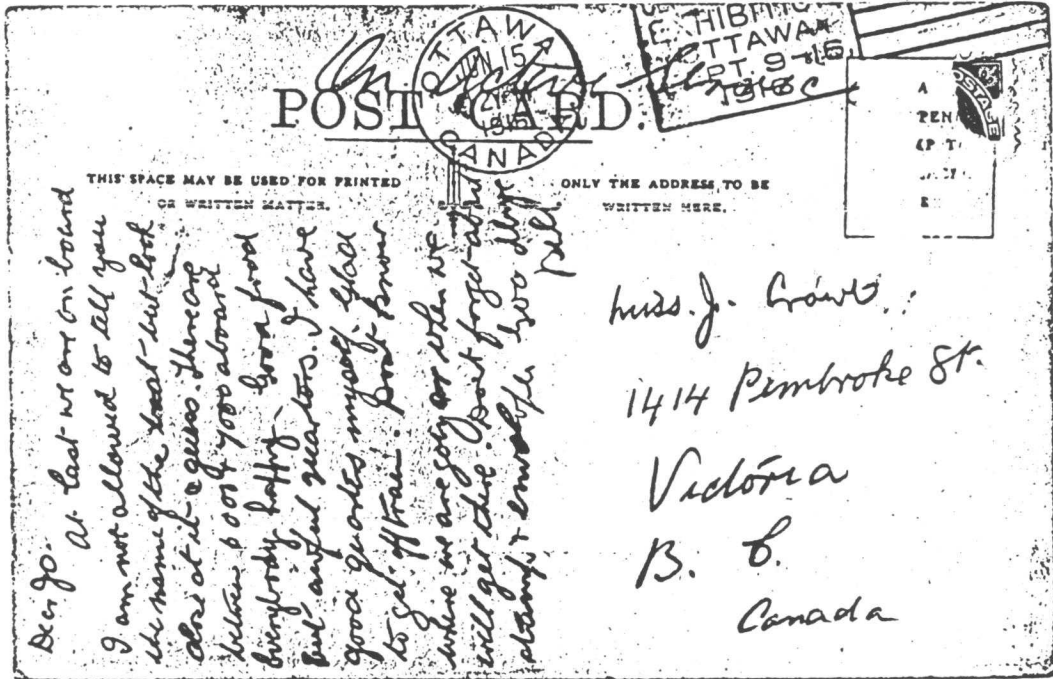 On Active Service
OTTAWA
JUN 15
21
1916
CANADA
EXHIBITION
OTTAWA
SEPT. 9-16
1916
POST CARD.
THIS SPACE MAY BE USED FOR PRINTED
OR WRITTEN MATTER.
ONLY THE ADDRESS TO BE
WRITTEN HERE.
A
PEN
POSTAGE
Dear Jo.
At last we are on board
I am not allowed to tell you
the name of the boat but look
close at it & guess. There are
between 6000 & 7000 aboard
everybody happy. Good food
but awful quarters. I have
good quarters myself. Glad
to get off train. Don't know
where we are going or when we
will get there. Don't forget about
stamps & envelope
Miss. J. Crowe
1414 Pembroke St.
Victoria
B. C.
Canada